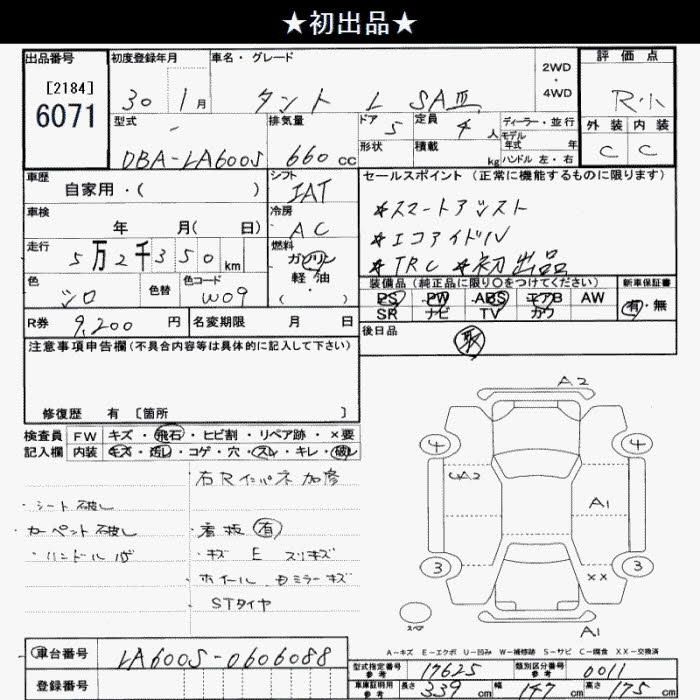 ★初出品★
出品番号
[2184]
6071
初度登録年月
30 1月
車名・グレード
タント L SAⅢ
2WD
・
4WD
評価点
R小
外装 内装
C C
型式
DBA-LA600S
排気量
660 cc
ドア
5
定員
4 人
ディーラー・並行
モデル
年式 年
形状
積載
kg
ハンドル 左・右
車歴
自家用・( )
シフト
IAT
セールスポイント (正常に機能するものに限ります)
☆スマートアシスト
☆エコアイドル
☆TRC ☆初出品
車検
年 月( 日)
冷房
AC
走行
5万2千350km
燃料
ガソリン
軽油
( ・ )
色
シロ
色替
色コード
W09
装備品 (純正品に限り○をつけてください)
PS PW ABS エアB AW
SR ナビ TV カワ
新車保証書
有・無
R券 9,200 円
名変期限 月 日
後日品
取
注意事項申告欄 (不具合内容等は具体的に記入して下さい)
修復歴 有 [箇所 ]
検査員
記入欄
FW キズ・飛石・ヒビ割・リペア跡・×要
内装 キズ・汚レ・コゲ・穴・スレ・キレ・破レ
・シート破レ
・カーペット破レ
・看板 有
・キズ E スリキズ
STタイヤ
A2
4 4
UA2
A1
3 3
XX
スペア
A1
A-キズ E-エクボ U-凹み W-補修跡 S-サビ C-腐食 XX-交換済
車台番号 LA600S-0606088
登録番号
型式指定番号
参考
17625
類別区分番号
参考
0011
車庫証明用
参考
長さ 339 cm 幅 147 cm 高さ 175 cm